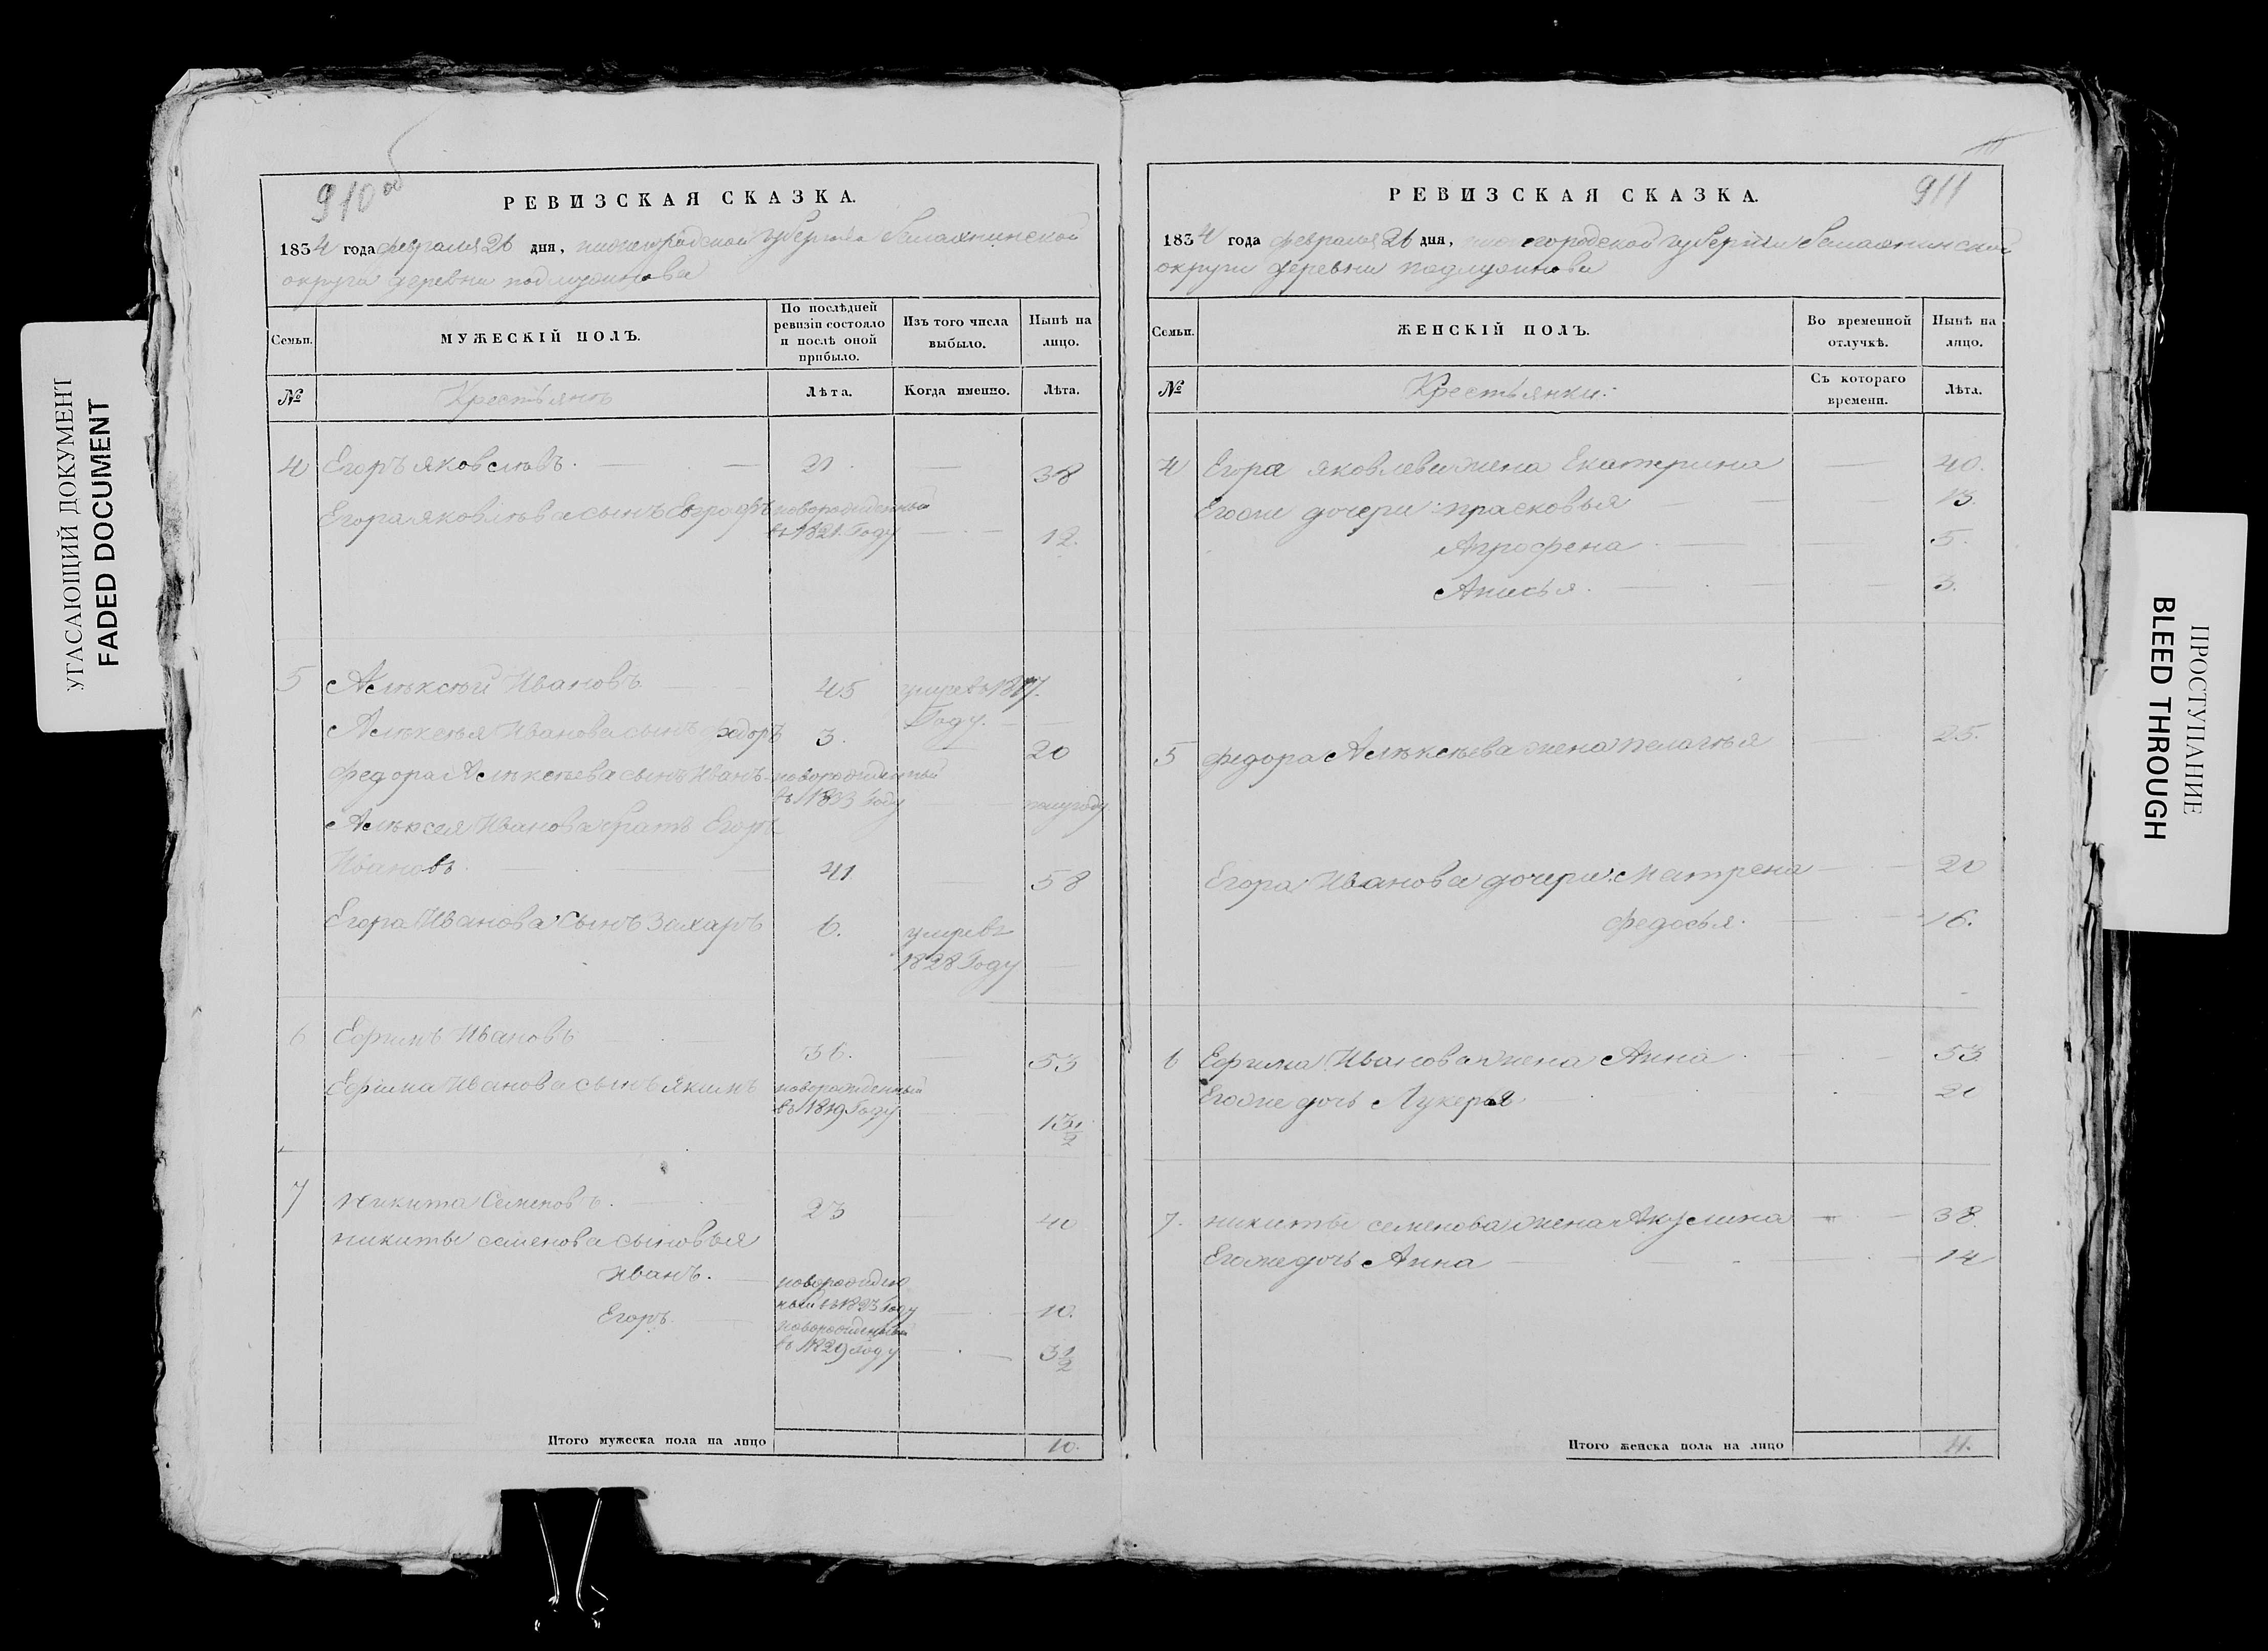 УГАСАЮЩИЙ ДОКУМЕНТ
FADED DOCUMENT
910 об
РЕВИЗСКАЯ СКАЗКА.
1834 года февраля 26 дня, нижегородской губернiи Балахнинской
округи деревни подлужнова
Семьи.
МУЖЕСКIЙ ПОЛЪ.
По послѣдней ревизiи состояло и послѣ оной прибыло.
Изъ того числа выбыло.
Нынѣ на лицо.
№
Крестьянъ
Лѣта.
Когда именно.
Лѣта.
4 Егоръ яковлевъ. 21 38
Егора яковлева сынъ Евграфъ новорожденный
въ 1821. Году 12.
5 Алѣксѣй Ивановъ 45 умре въ 1817.
Году.
Алѣксѣя Иванова сынъ федоръ 3. 20
Федора Алѣксѣева сынъ Иванъ новорожденный
въ 1833 Году полугоду
Алѣксея Иванова братъ Егоръ
Ивановъ 41 58
Егора Иванова Сынъ Захаръ 6. умре въ
1828 Году
6 Ефимъ Ивановъ 36. 53
Ефима Иванова сынъ якимъ новорожденный
въ 1819 Году 13 1/2
7 никита Семеновъ. 23 40
никиты семенова сыновья
иванъ. новорожден
ный въ 1823 Году 10.
Егоръ новорожденный
въ 1829 году 3 1/2
Итого мужеска пола на лицо 10.
911
РЕВИЗСКАЯ СКАЗКА.
1834 года февраля 26 дня, нижегородской губернiи Балахнинской
округи деревни подлужнова
Семьи.
ЖЕНСКIЙ ПОЛЪ.
Во временной отлучкѣ.
Нынѣ на лицо.
№
Крестьянки:
Съ котораго времени.
Лѣта.
4 Егора яковлева жена Екатерина 40.
Егоже дочери: прасковья 13.
Агрофена 5.
Анисья. 3.
5 федора Алѣксѣева жена пелагѣя 25.
Егора Иванова дочери: Матрена 20
федосья. 16.
6 Ефима Иванова жена Анна 53
Егоже дочь Лукерья 20
7. никиты семенова жена Акулина 38.
Егоже дочь Анна 14
Итого женска пола на лицо 11.
ПРОСТУПАНИЕ
BLEED THROUGH